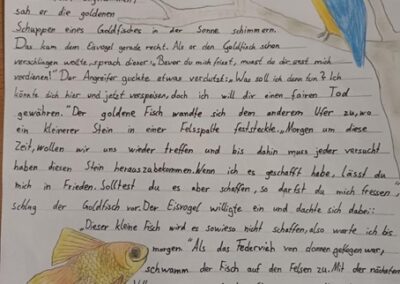 sah er die goldenen
Schuppen eines Goldfisches in der Sonne schimmern.
Das kam dem Eisvogel gerade recht. Als er den Goldfisch schon
verschlingen wollte, sprach dieser: „Bevor du mich frisst, musst du dir erst mich
verdienen!" Der Angreifer guckte etwas verdutzt: „Was soll ich denn tun?" Ich
könnte dich hier und jetzt verspeisen, doch ich will dir einen fairen Tod
gewähren." Der goldene Fisch wandte sich dem anderem Ufer zu, wo
ein kleinerer Stein in einer Felsspalte feststeckte. „Morgen um diese
Zeit, wollen wir uns wieder treffen und bis dahin muss jeder versucht
haben diesen Stein herauszubekommen. Wenn ich es geschafft habe, lässt du
mich in Frieden. Solltest du es aber schaffen, so darfst du mich fressen",
schlug der Goldfisch vor. Der Eisvogel willigte ein und dachte sich dabei:
„Dieser kleine Fisch wird es sowieso nicht schaffen, also warte ich bis
morgen." Als das Federvieh von dannen geflogen war,
schwamm der Fisch auf den Felsen zu. Mit der nächsten